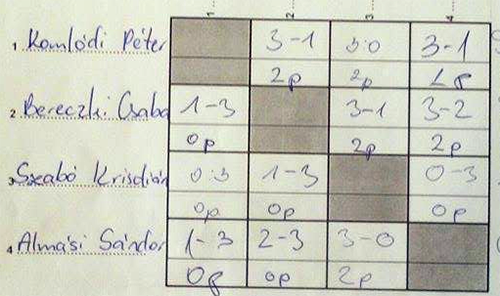 1 2 3 4
1 Komlódi Péter 3-1 3:0 3-1
2p 2p 2p
2 Bereczki Csaba 1-3 3-1 3-2
0p 2p 2p
3 Szabó Krisdián 0:3 1-3 0-3
0p 0p 0p
4 Almási Sándor 1-3 2-3 3-0
0p 0p 2p